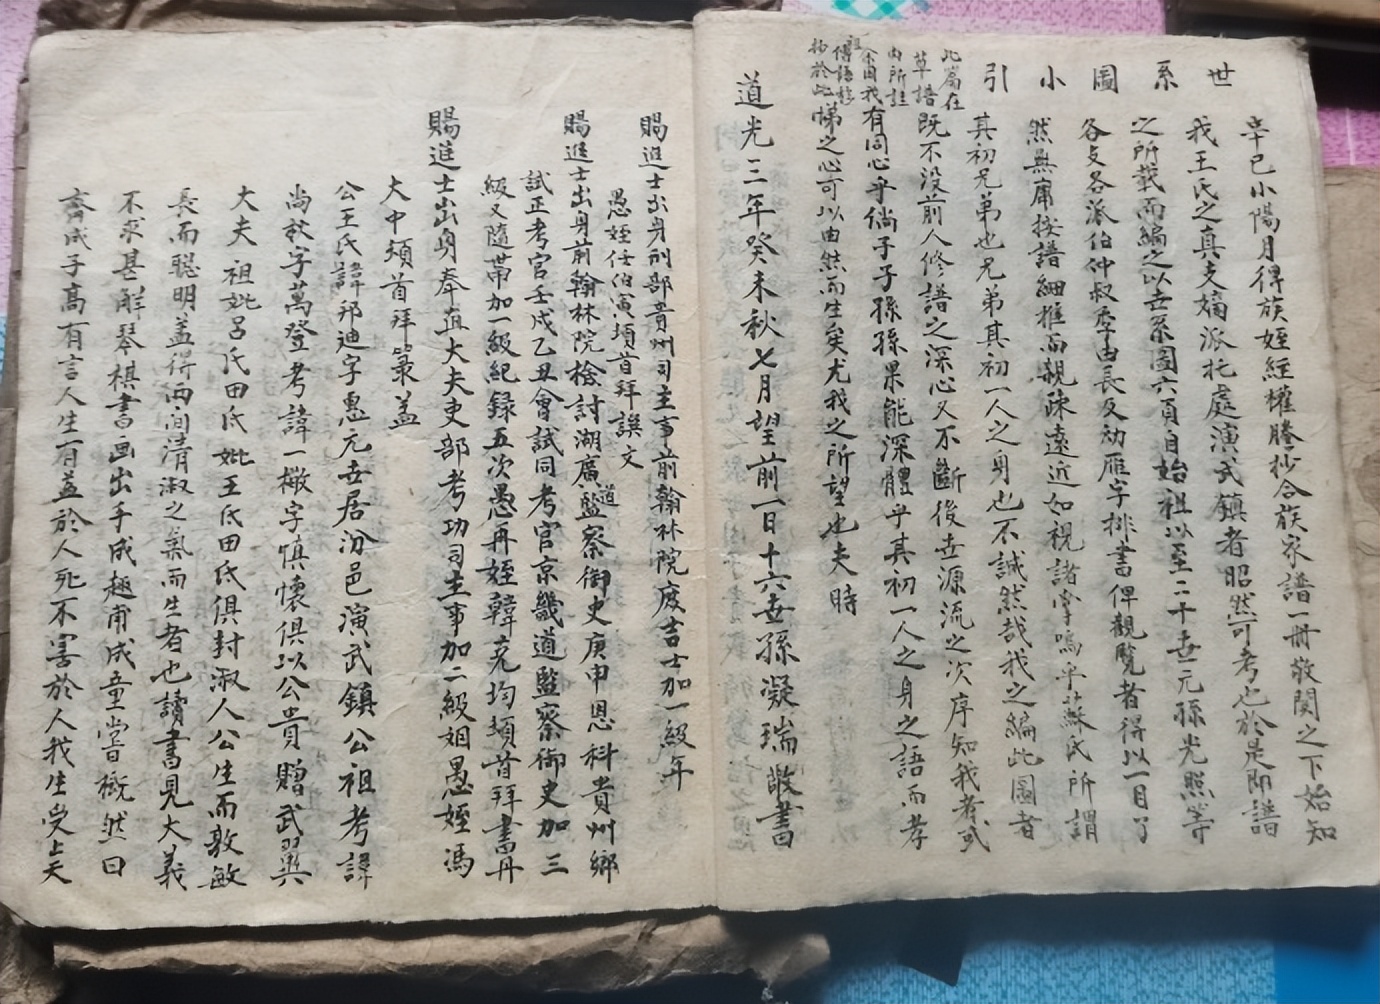 世系圖小引
辛巳小陽月得族姪經權謄抄合族家譜一冊敬閱之下始知
我王氏之真夫嫡派托處演武鎮者昭然可考也於是即譜
之所載而編之以世系圖六頁自始祖以至二十世元孫光照等
各支各派伯仲叔季由長及幼雁字排書俾觀覧者得以一目了
然無庸按譜細推而親疎遠近如視諸掌嗚乎蘇氏所謂
其初兄弟也兄弟其初一人之身也不誠然哉我之編此圖者
既不没前人修譜之深心又不斷後世源流之次序知我者或
有同心乎倘子子孫孫果能深體乎其初一人之身之語而孝
悌之心可以由然而生矣尤我之所望也夫時
此篇在
草譜
内所註
余因我
傳語移
抄於此
道光三年癸未秋七月望前一日十六世孫凝瑞敬書
賜進士出身刑部貴州司主事前翰林院庶吉士加一級年
愚姪任伯寅頓首拜譔文
賜進士出身前翰林院檢討湖廣道監察御史庚申恩科貴州鄉
試正考官壬戌乙丑會試同考官京畿道監察御史加三
級又隨帶加一級紀録五次愚再姪韓克均頓首拜書丹
賜進士出身奉直大夫吏部考功司主事加二級姻愚姪馮
大中頓首拜篆盖
公王氏諱邦迪字惠元世居汾邑演武鎮公祖考諱
尚秋字萬登考諱一檄字慎懷俱以公貴贈武翼
大夫祖妣吕氏田氏妣王氏田氏俱封淑人公生而敦敏
長而聰明盖得兩间清淑之氣而生者也讀書見大義
不求甚解琴棋書画出手成趣甫成童嘗概然曰
齊成子高有言人生有益於人死不害於人我生受上天